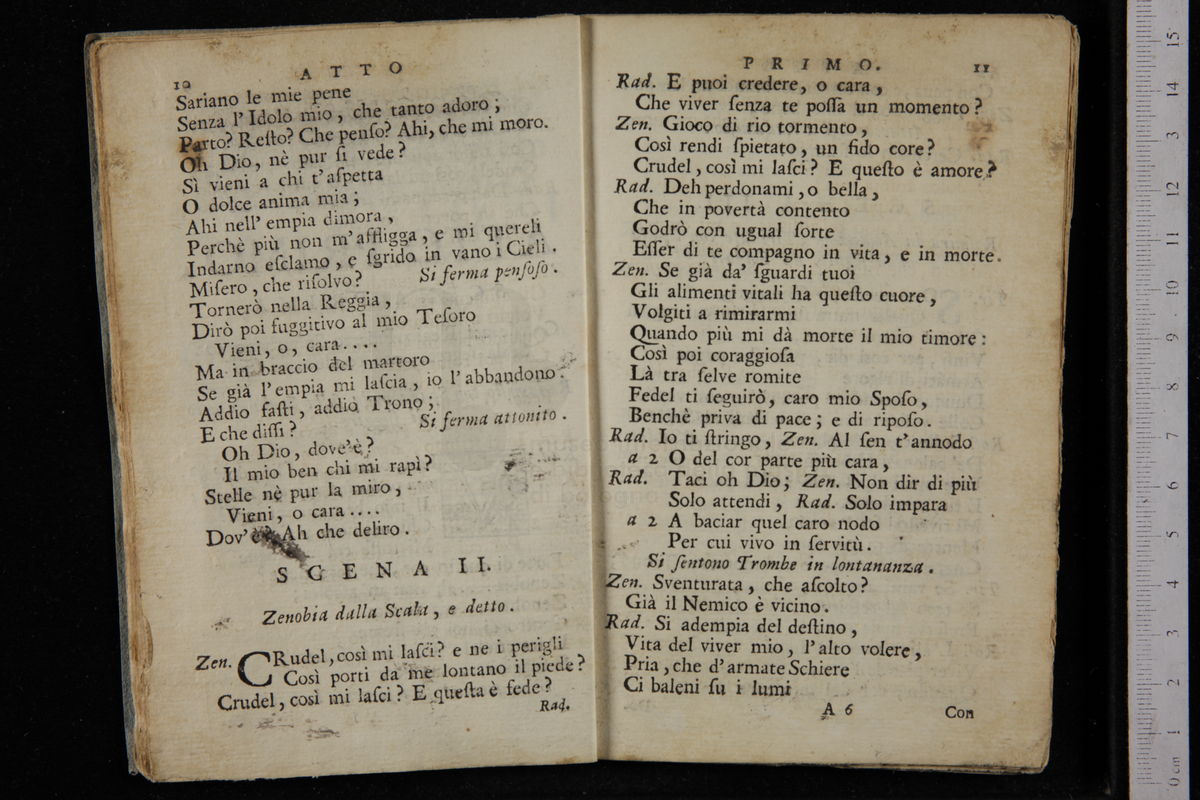 10 ATTO
Sariano le mie pene
Senza l'Idolo mio, che tanto adoro;
Parto? Reſto? Che penſo? Ahi, che mi moro.
Oh Dio, nè pur ſi vede?
Sì vieni a chi t'aſpetta
O dolce anima mia;
Ahi nell' empia dimora,
Perchè più non m'affligga, e mi quereli
Indarno eſclamo, e ſgrido in vano i Cieli.
Miſero, che riſolvo? Si ferma penſoſo.
Tornerò nella Reggia,
Dirò poi fuggitivo al mio Teſoro
Vieni, o, cara....
Ma in braccio del martoro
Se già l'empia mi laſcia, io l'abbandono.
Addio faſti, addio Trono;
E che diſſi? Si ferma attonito.
Oh Dio, dove'è?
Il mio ben chi mi rapì?
Stelle nè pur la miro,
Vieni, o cara....
Dov'è? Ah che deliro.
SCENA II.
Zenobia dalla Scala, e detto.
Zen. CRudel, così mi laſci? e ne i perigli
Così porti da me lontano il piede?
Crudel, così mi laſci? E queſta è fede?
Rad.
PRIMO. 11
Rad. E puoi credere, o cara,
Che viver ſenza te poſſa un momento?
Zen. Gioco di rio tormento,
Così rendi ſpietato, un fido core?
Crudel, così mi laſci? E queſto è amore?
Rad. Deh perdonami, o bella,
Che in povertà contento
Godrò con ugual ſorte
Eſſer di te compagno in vita, e in morte.
Zen. Se già da' ſguardi tuoi
Gli alimenti vitali ha queſto cuore,
Volgiti a rimirarmi
Quando più mi dà morte il mio timore:
Così poi coraggioſa
Là tra ſelve romite
Fedel ti ſeguirò, caro mio Spoſo,
Benchè priva di pace; e di ripoſo.
Rad. Io ti ſtringo, Zen. Al ſen t'annodo
a 2 O del cor parte più cara,
Rad. Taci oh Dio; Zen. Non dir di più
Solo attendi, Rad. Solo impara
a 2 A baciar quel caro nodo
Per cui vivo in ſervitù.
Si ſentono Trombe in lontananza.
Zen. Sventurata, che aſcolto?
Già il Nemico è vicino.
Rad. Si adempia del deſtino,
Vita del viver mio, l'alto volere,
Pria, che d'armate Schiere
Ci baleni ſu i lumi
A 6 Con
0 cm 1 2 3 4 5 6 7 8 9 10 11 12 3 14 15